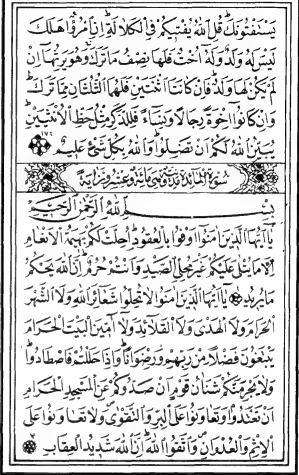 يَسْتَفْتُونَكَ قُلِ اللّٰهُ يُفْتيكُمْ فِى الْكَلَالَةِ اِنِ امْرُؤٌا هَلَكَ
لَيْسَ لَهُ وَلَدٌ وَلَهُ اُخْتٌ فَلَهَا نِصْفُ مَا تَرَكَ وَهُوَ يَرِثُهَا اِنْ
لَمْ يَكُنْ لَهَا وَلَدٌ فَاِنْ كَانَتَا اثْنَتَيْنِ فَلَهُمَا الثُّلُثَانِ مِمَّا تَرَكَ
وَاِنْ كَانُوا اِخْوَةً رِجَالًا وَنِسَاءً فَلِلذَّكَرِ مِثْلُ حَظِّ الْاُنْثَيَيْنِ
يُبَيِّنُ اللّٰهُ لَكُمْ اَنْ تَضِلُّوا وَاللّٰهُ بِكُلِّ شَىْءٍ عَليمٌ ١٧٦
بِسْمِ اللّٰهِ الرَّحْمٰنِ الرَّحيمِ
يَا اَيُّهَا الَّذينَ اٰمَنُوا اَوْفُوا بِالْعُقُودِ اُحِلَّتْ لَكُمْ بَهيمَةُ الْاَنْعَامِ
اِلَّا مَا يُتْلٰى عَلَيْكُمْ غَيْرَ مُحِلِّى الصَّيْدِ وَاَنْتُمْ حُرُمٌ اِنَّ اللّٰهَ يَحْكُمُ
مَا يُريدُ يَا اَيُّهَا الَّذينَ اٰمَنُوا لَا تُحِلُّوا شَعَائِرَ اللّٰهِ وَلَا الشَّهْرَ
الْحَرَامَ وَلَا الْهَدْىَ وَلَا الْقَلَائِدَ وَلَا اٰمّينَ الْبَيْتَ الْحَرَامَ
يَبْتَغُونَ فَضْلًا مِنْ رَبِّهِمْ وَرِضْوَانًا وَاِذَا حَلَلْتُمْ فَاصْطَادُوا
وَلَا يَجْرِمَنَّكُمْ شَنَاٰنُ قَوْمٍ اَنْ صَدُّوكُمْ عَنِ الْمَسْجِدِ الْحَرَامِ
اَنْ تَعْتَدُوا وَتَعَاوَنُوا عَلَى الْبِرِّ وَالتَّقْوٰى وَلَا تَعَاوَنُوا عَلَى
الْاِثْمِ وَالْعُدْوَانِ وَاتَّقُوا اللّٰهَ اِنَّ اللّٰهَ شَديدُ الْعِقَابِ